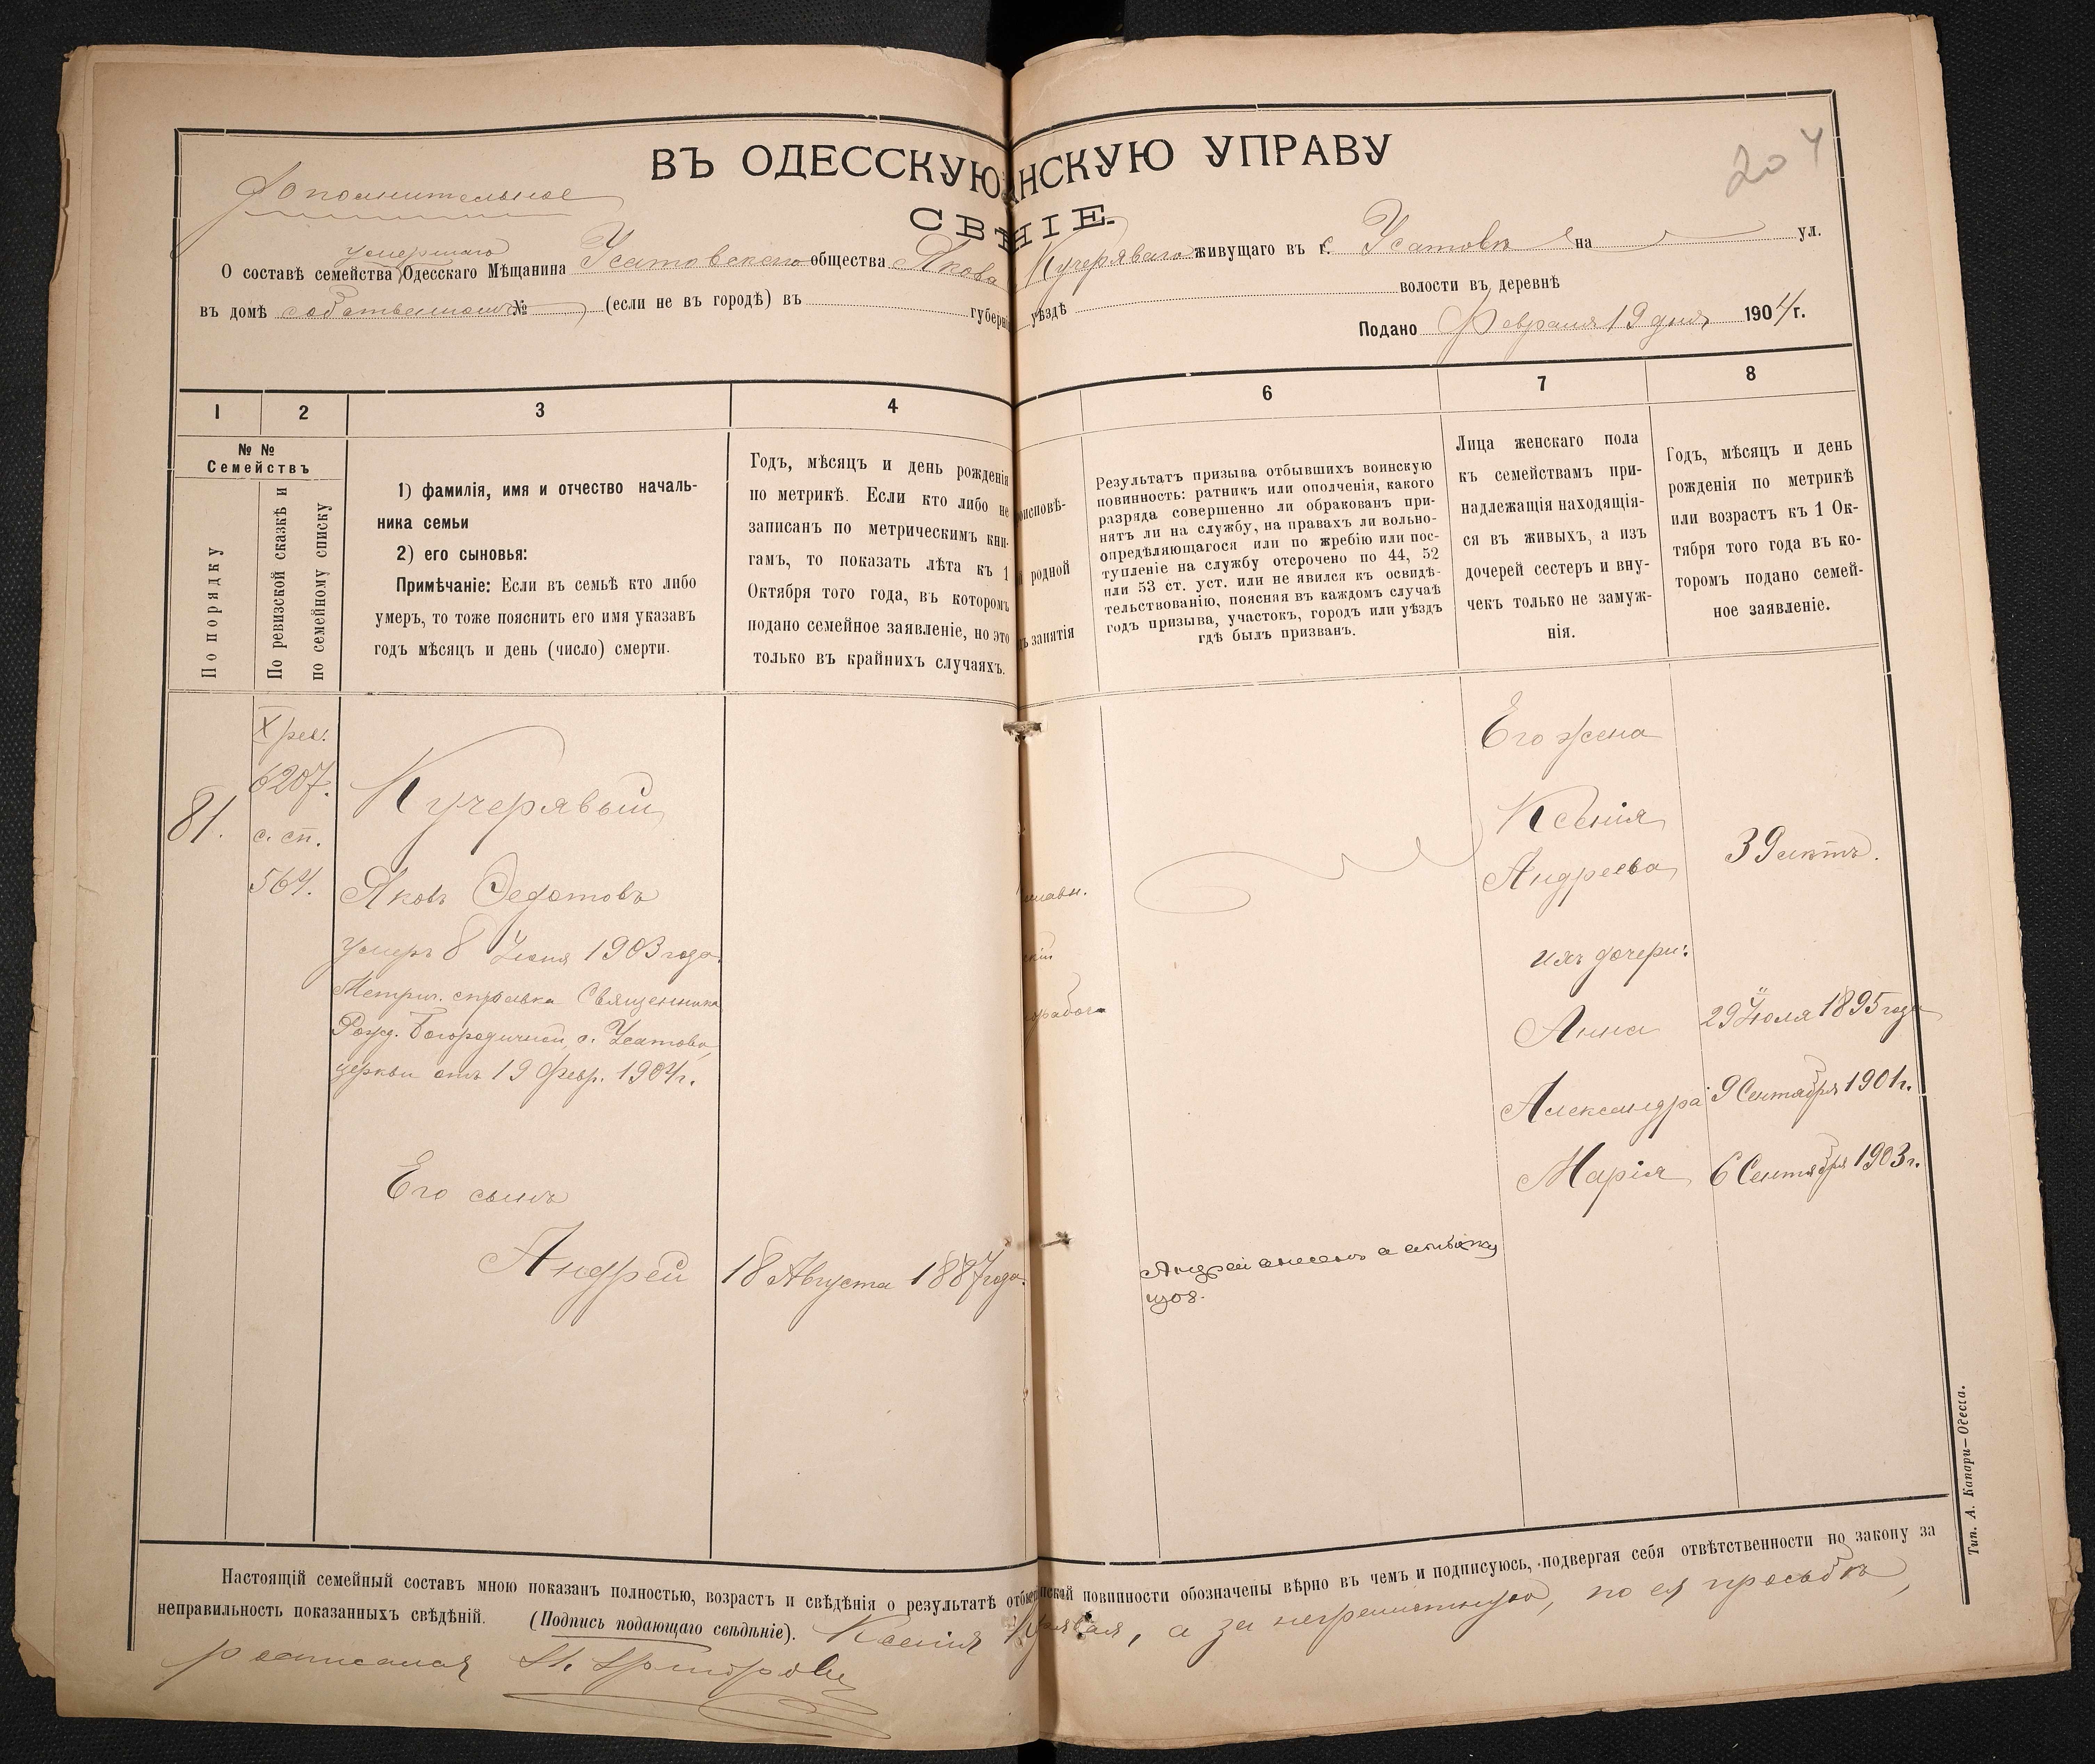 204
ВЪ ОДЕССКУЮ НСКУЮ УПРАВУ
Дополнительное
СВ НІЕ.
умершаго
О составѣ семейства Одесскаго Мѣщанина Усатовскаго общества Якова Кучеряваго живущаго въ г. с. Усатовѣ на ул.
въ домѣ собственномъ № (если не въ городѣ) въ губерні уѣздѣ волости въ деревнѣ
Подано Февраля 19 дня 1904 г.
1 2 3 4 6 7 8
№ №
Семействъ
По порядку
По ревизской сказкѣ и
по семейному списку
1) фамилія, имя и отчество началь-
ника семьи
2) его сыновья:
Примѣчаніе: Если въ семьѣ кто либо
умеръ, то тоже пояснить его имя указавъ
годъ мѣсяцъ и день (число) смерти.
Годъ, мѣсяцъ и день рожденія
по метрикѣ. Если кто либо не
записанъ по метрическимъ кни-
гамъ, то показать лѣта къ 1
Октября того года, въ которомъ
подано семейное заявленіе, но это
только въ крайнихъ случаяхъ.
оисповѣ-
родной
ъ занятія
Результатъ призыва отбывшихъ воинскую
повинность: ратникъ или ополченія, какого
разряда совершенно ли обракованъ при-
нятъ ли на службу, на правахъ ли вольно-
опредѣляющагося или по жребію или пос-
тупленіе на службу отсрочено по 44, 52
или 53 ст. уст. или не явился къ освидѣ-
тельствованію, поясняя въ каждомъ случаѣ
годъ призыва, участокъ, городъ или уѣздъ
гдѣ былъ призванъ.
Лица женскаго пола
къ семействамъ при-
надлежащія находящія-
ся въ живыхъ, а изъ
дочерей сестеръ и вну-
чекъ только не замуж-
нія.
Годъ, мѣсяцъ и день
рожденія по метрикѣ
или возрастъ къ 1 Ок-
тября того года въ ко-
торомъ подано семей-
ное заявленіе.
81.
X рев.
6207.
с. сп.
564.
Кучерявый
Яковъ Федотовъ
умеръ 8 Іюня 1903 года.
Метрич. справка Священника
Рожд. Богородичной, с. Усатова,
церкви отъ 19 Февр. 1904 г.
Его сынъ
Андрей
18 Августа 1887 года.
славн.
скій
орабоч
Андрей
Его жена
Ксенія
Андреева
39 лѣтъ.
ихъ дочери:
Анна 29 Іюля 1895 года
Александра 9 Сентября 1901 г.
Марія 6 Сентября 1903 г.
Настоящій семейный составъ мною показанъ полностью, возрастъ и свѣдѣнія о результатѣ отбы нской повинности обозначены вѣрно въ чемъ и подписуюсь, подвергая себя отвѣтственности по закону за
неправильность показанныхъ свѣдѣній. (Подпись подающаго свѣдѣніе). Ксенія К рявая, а за неграмотную, по ея просьбѣ,
росписался
Тип. А. Капари—Одесса.